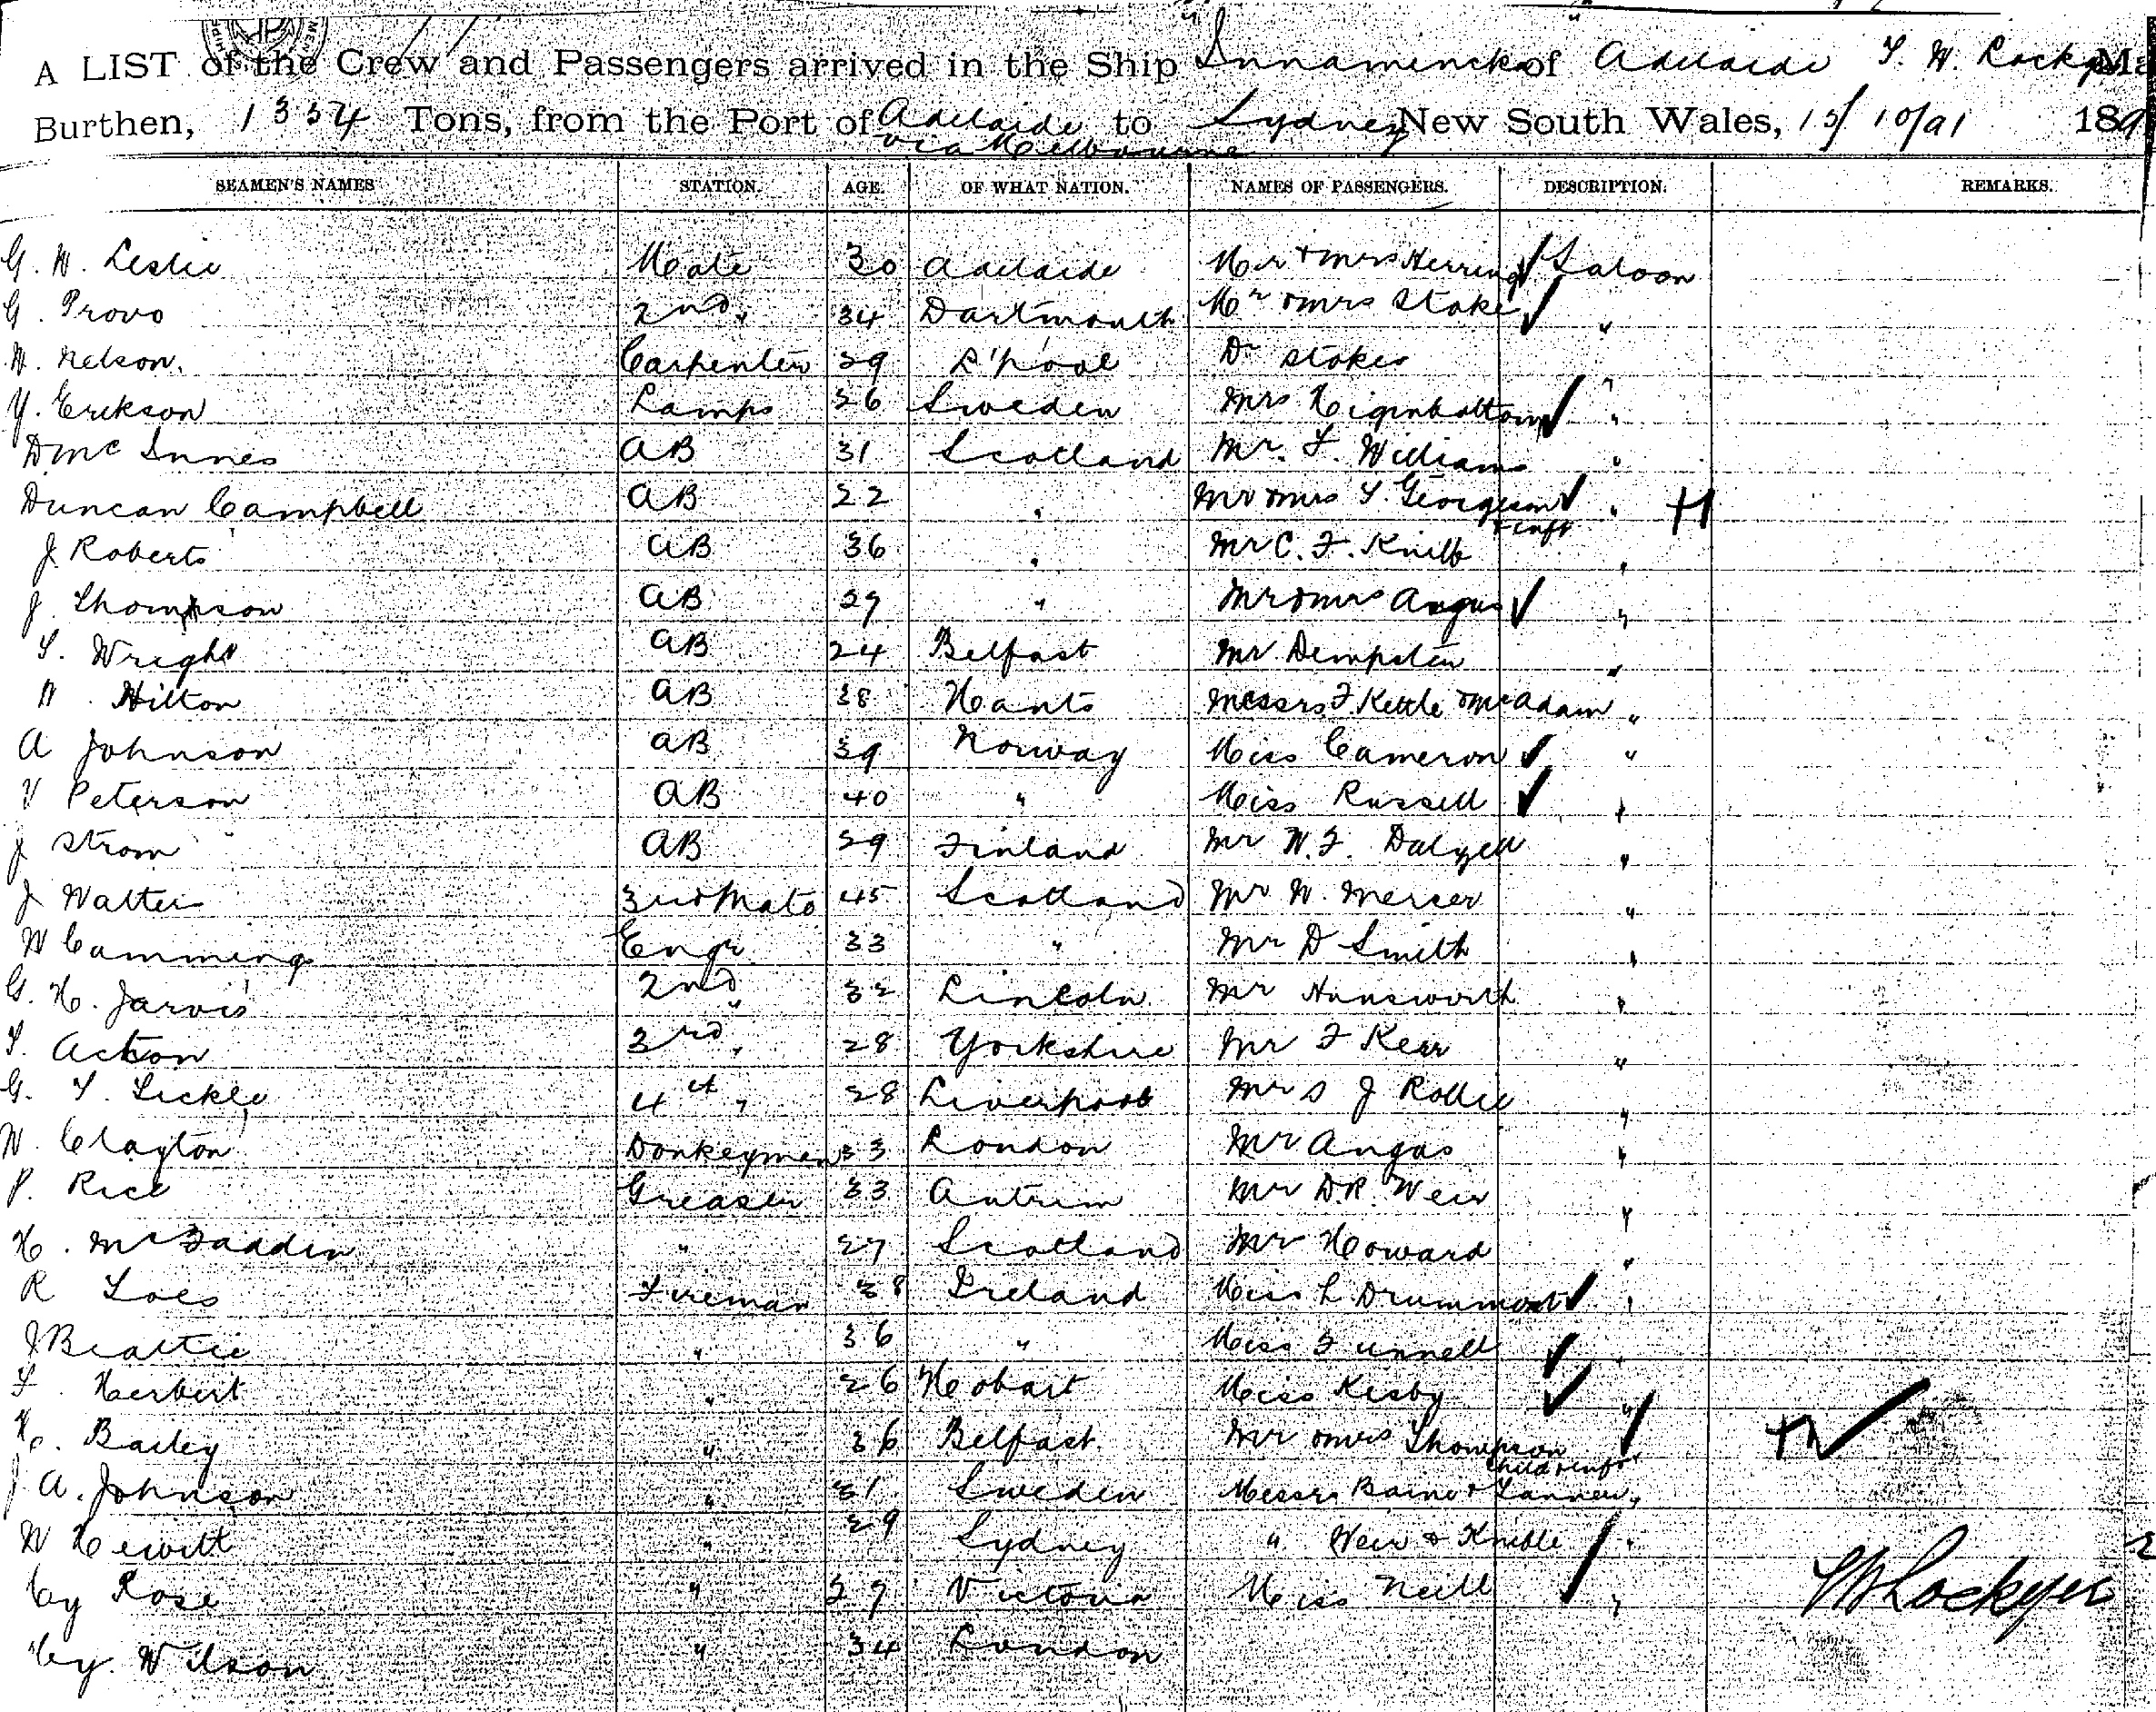 A LIST of the Crew and Passengers arrived in the Ship Innamincka of Adelaide T. W. Lockyer Ma
Burthen, 1334 Tons, from the Port of Adelaide to Sydney New South Wales, 15/10/91 189
via Melbourne
SEAMEN'S NAMES STATION. AGE. OF WHAT NATION. NAMES OF PASSENGERS. DESCRIPTION. REMARKS.
G. W. Leslie Mate 30 Adelaide Mr & Mrs Herring Saloon
G. Provo 2nd " 34 Dartmouth Mr & Mrs Stoke "
W. Nelson. Carpenter 29 L'pool Dr Stokes "
Y. Erikson Lamps 26 Sweden Mrs Higinbottom "
D Mc Innes AB 31 Scotland Mr. F. Williams "
Duncan Campbell AB 22 " Mr & Mrs T. Georgeson "
& inft
J Roberts AB 36 " Mr C. F. Knibb "
J. Thompson AB 29 " Mr & Mrs Angus "
T. Wright AB 24 Belfast Mr Dempster "
W. Hilton AB 38 Hants Messrs F. Kettle & McAdam "
A Johnson AB 39 Norway Miss Cameron "
V Peterson AB 40 " Miss Russell "
J Strom AB 29 Finland Mr W. F. Dalzell "
J Walter 3rd Mate 45 Scotland Mr W. Mercer "
W Cummings Engr 33 " Mr D Smith "
G. H. Jarvis 2nd " 32 Lincoln Mr Hunsworth "
T. Acton 3rd " 28 Yorkshire Mr F Kerr "
G. T. Lickley 4th " 28 Liverpool Mrs J Rollie "
W. Clayton Donkeyman 33 London Mr Angas "
P. Rice Greaser 33 Antrim Mr D.R. Weir "
H. McFadden " 27 Scotland Mr Howard "
R Fireman 38 Ireland Miss L. Drummond "
J Beattie " 36 " Miss Funnell "
F. Herbert " 26 Hobart Miss Kesby "
H. Bailey " 36 Belfast Mr & Mrs Thompson "
child & inft
J. A. Johnson " 31 Sweden Messrs Baine & "
W Hewitt " 29 Sydney " Weir & Knibble "
Hy Rose " 27 Victoria Miss Neill "
TW Lockyer
Hy. Wilson " 34 London